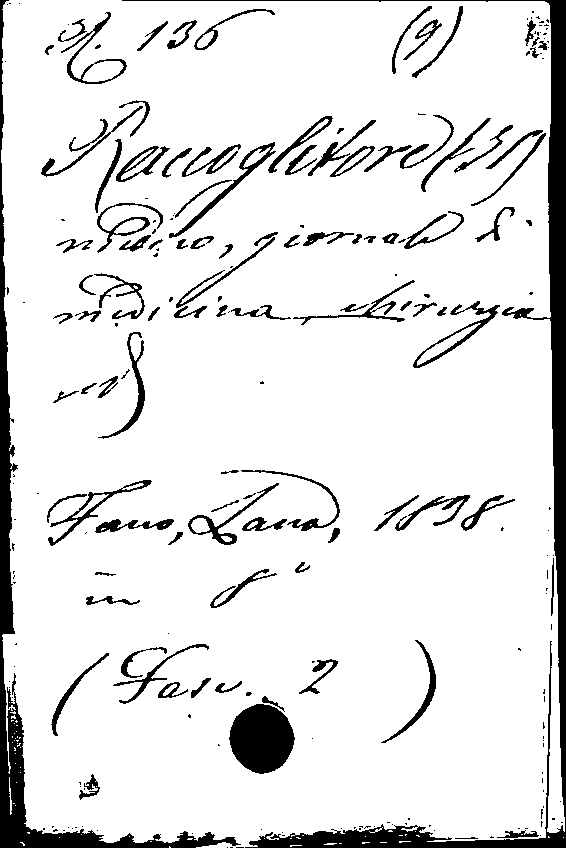 R. 136 (9)
Raccoglitore (Il)
medico, giornale di
medicina chirurgia
ecc
Fano, Lana, 1838.
in 8°
(Fasc. 2)